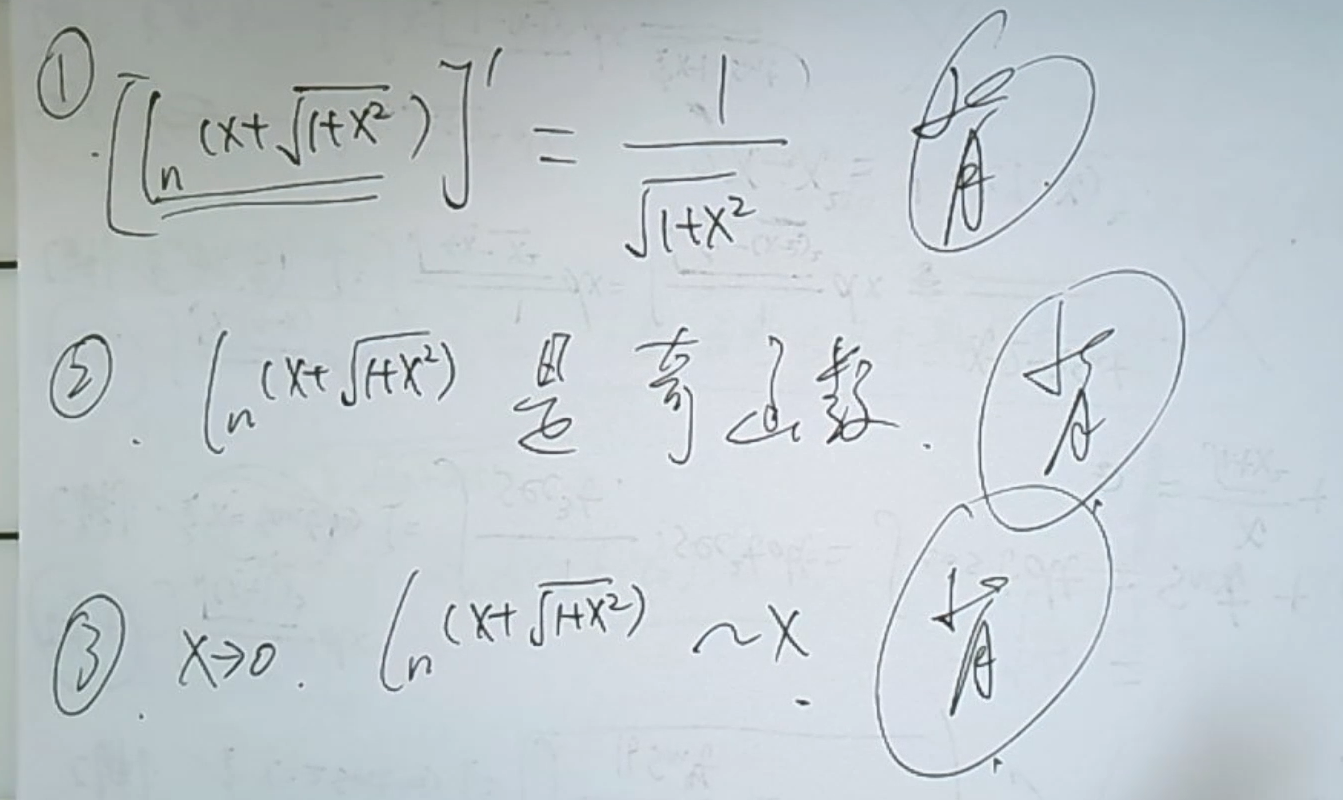 ① [ln(x+√(1+x²))]' = 1/√(1+x²) 背
② ln(x+√(1+x²)) 是奇函数. 背
③ x→0. ln(x+√(1+x²)) ~x. 背